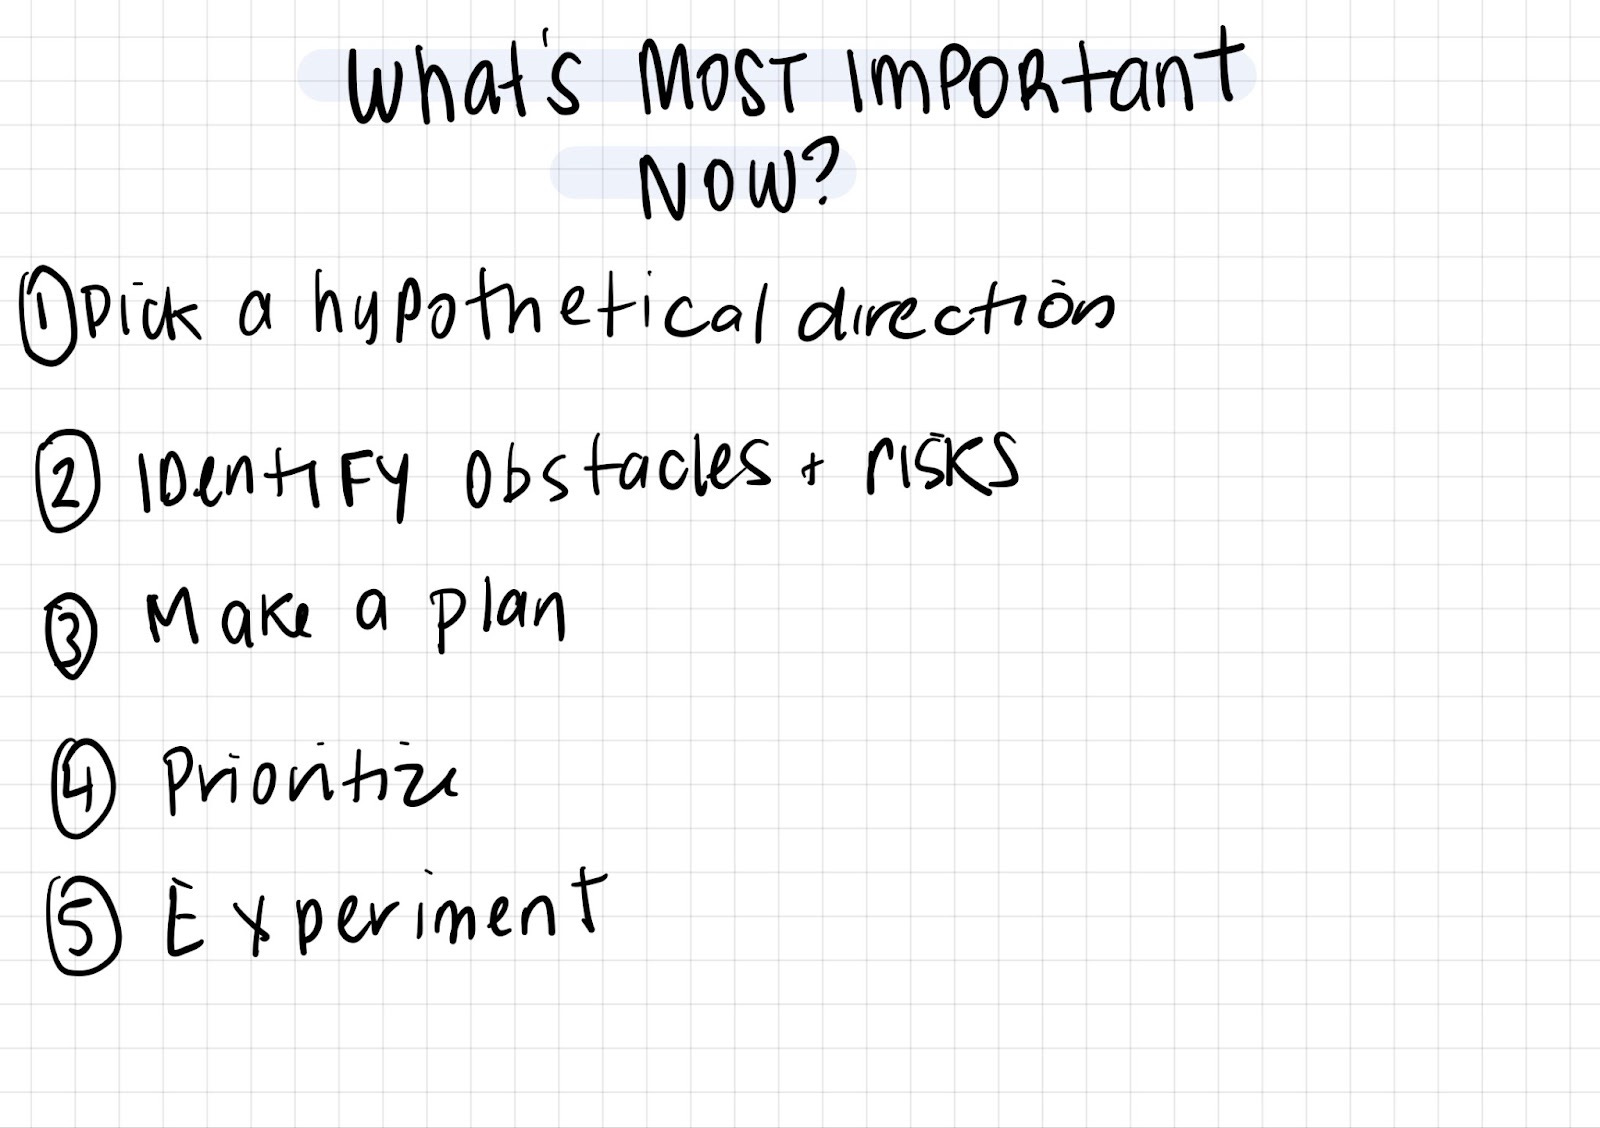 What's MOST IMPORtant
NOW?
① Pick a hypothetical direction
② IDentIFY Obstacles + risks
③ Make a plan
④ Prioritize
⑤ Experiment